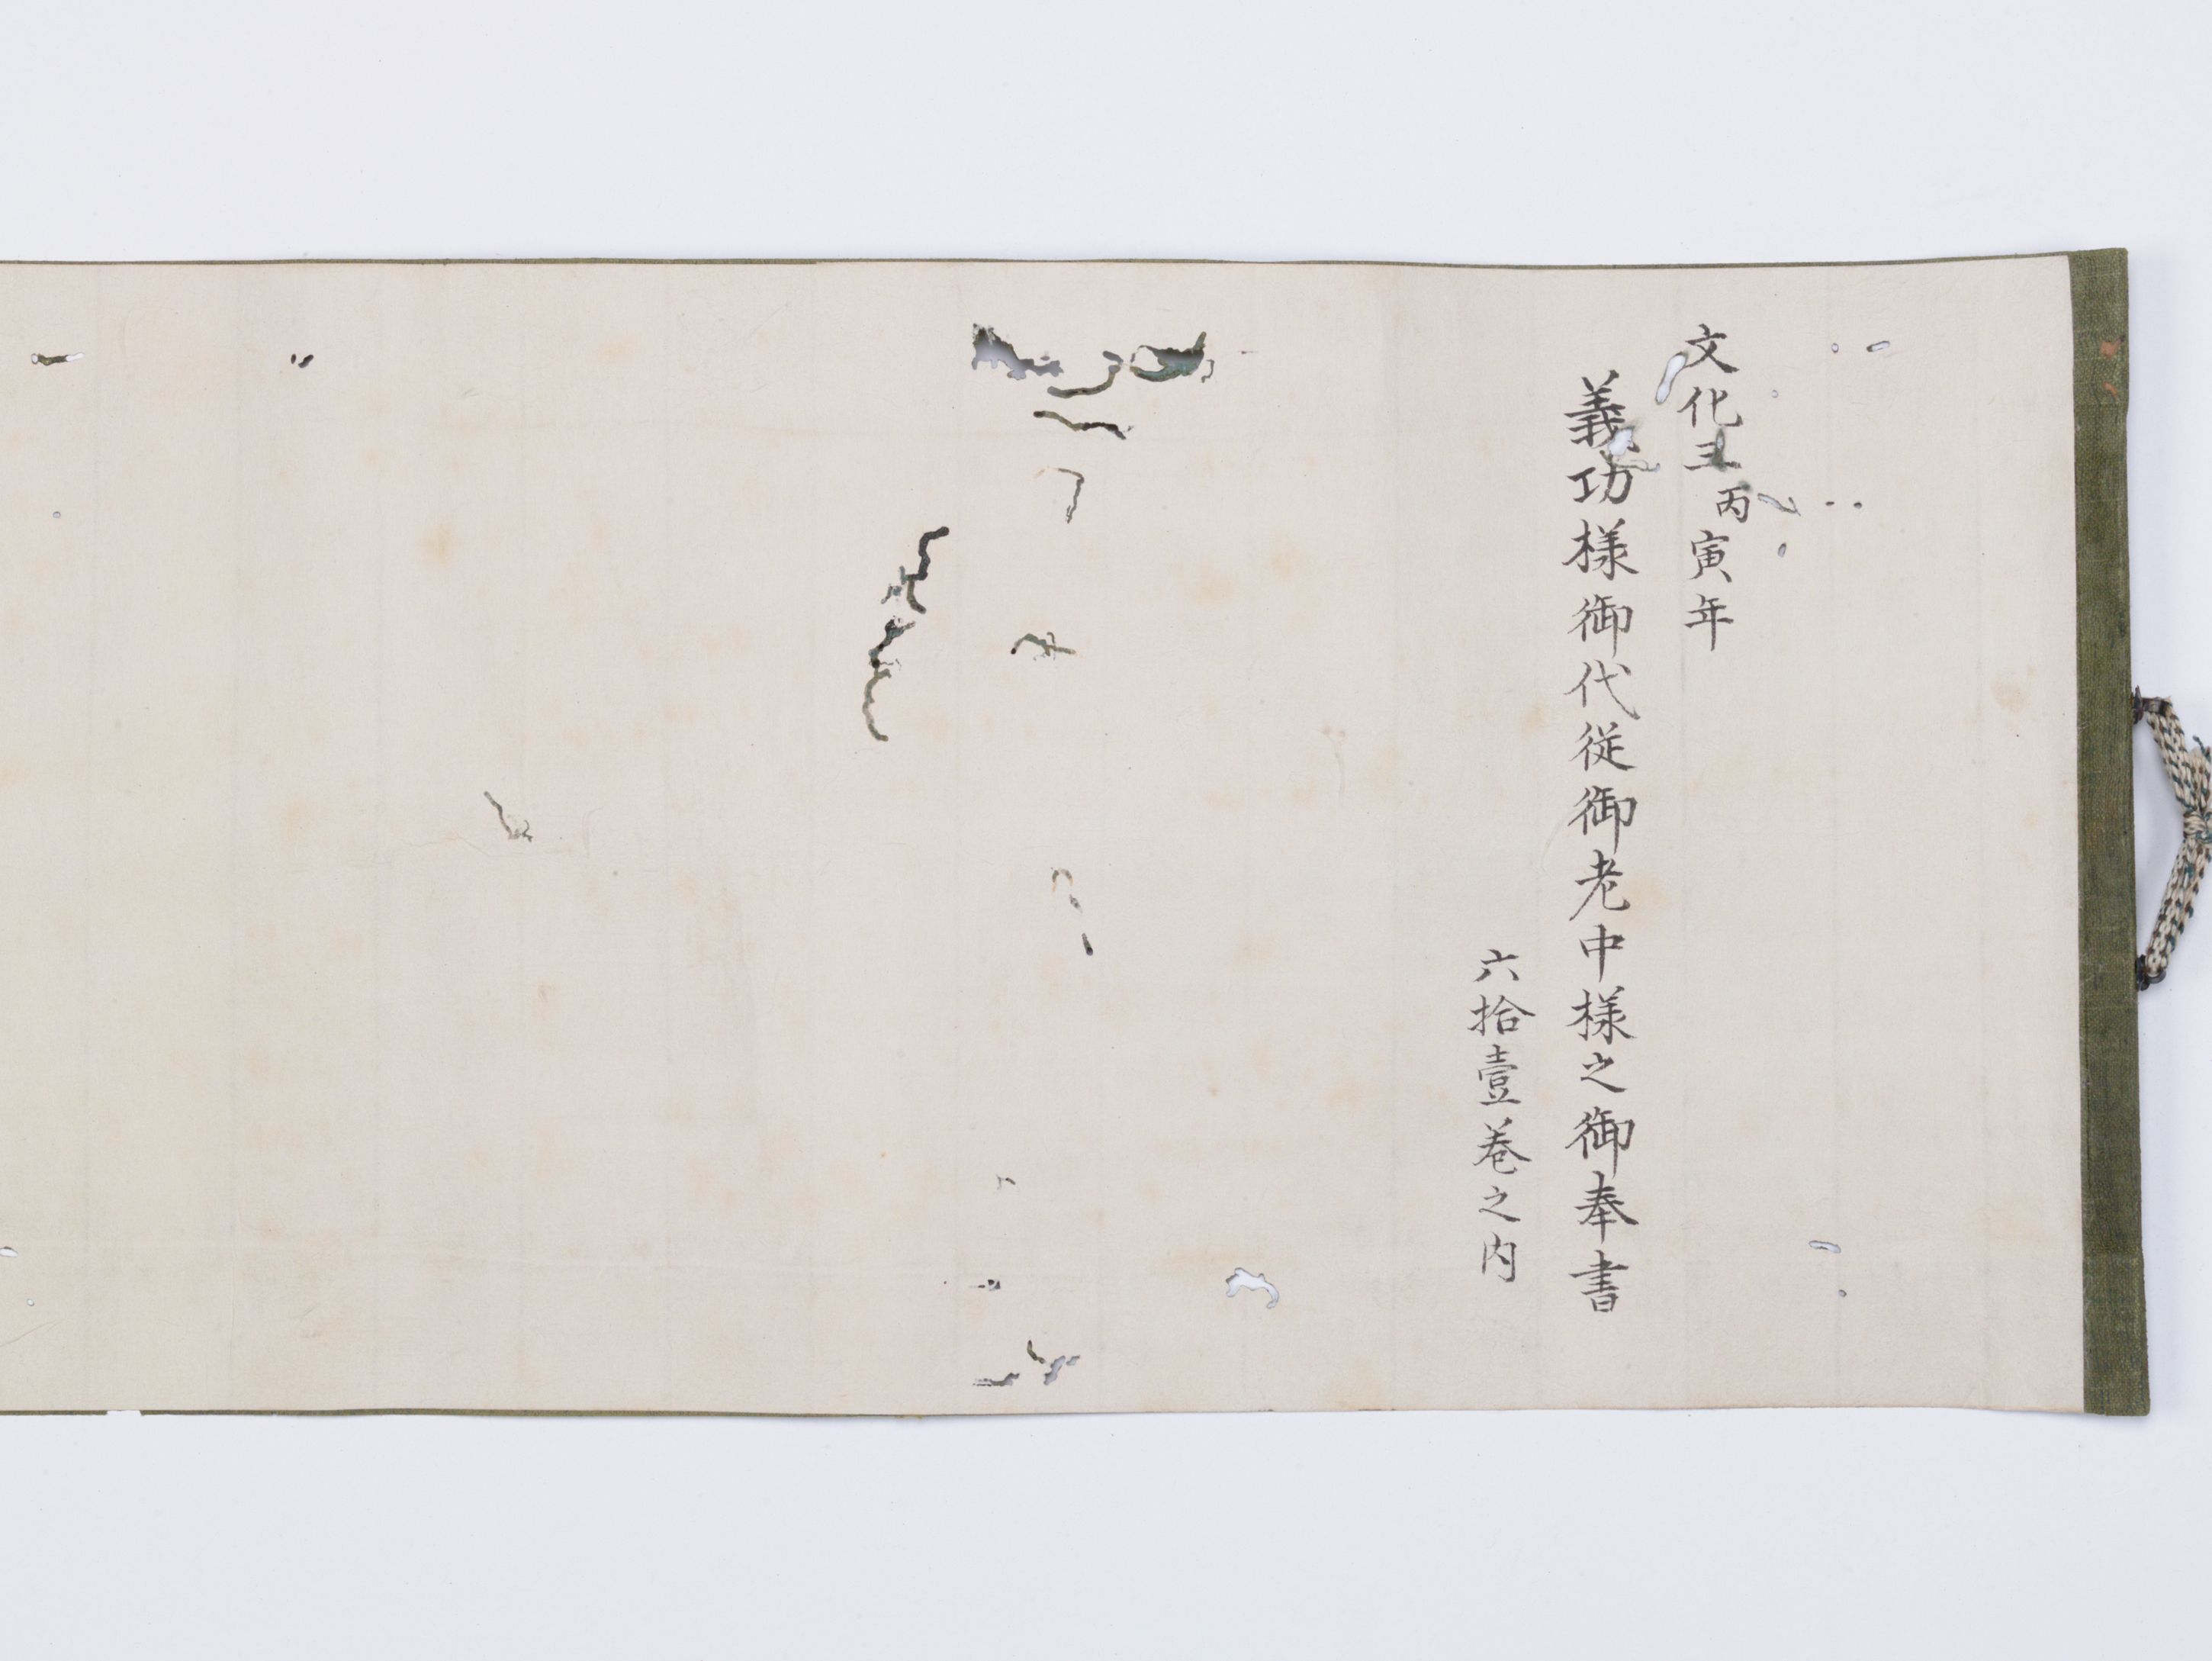 文化三丙寅年
義功様御代従御老中様之御奉書
六拾壹巻之内